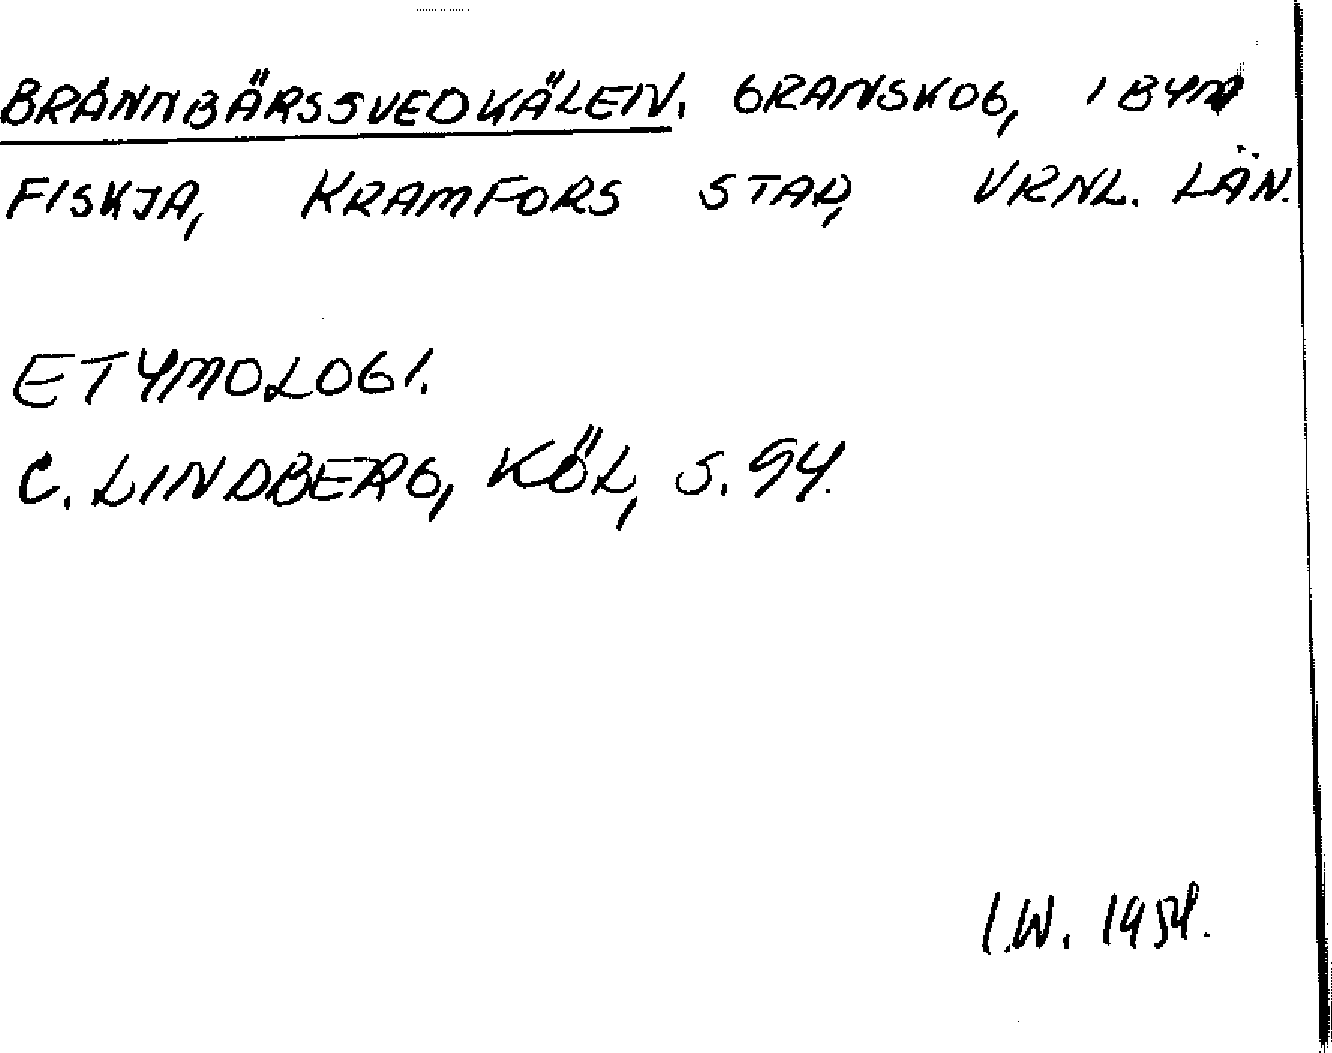 BRÄNNBÄRSSVEDKÄLEN. GRANSKOG, I BYN
FISKJA, KRAMFORS STAD, VRNL. LÄN.
ETYMOLOGI.
C. LINDBERG, KÖL, S. 94.
I.W. 1954.